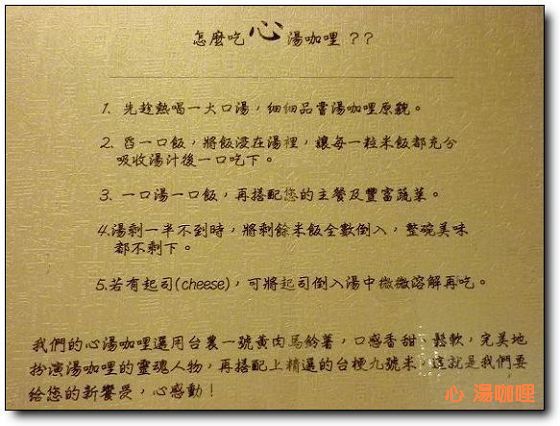 怎麼吃心湯咖哩 ??
1. 先趁熱喝一大口湯，細細品嘗湯咖哩原貌。
2. 舀一口飯，將飯浸在湯裡，讓每一粒米飯都充分
吸收湯汁後一口吃下。
3. 一口湯一口飯，再搭配您的主餐及豐富蔬菜。
4.湯剩一半不到時，將剩餘米飯全數倒入，整碗美味
都不剩下。
5.若有起司(cheese)，可將起司倒入湯中微微溶解再吃。
我們的心湯咖哩選用台農一號黃肉馬鈴薯，口感香甜、鬆軟，完美地
扮演湯咖哩的靈魂人物，再搭配上精選的台梗九號米，這就是我們要
給您的新饗受，心感動！
心 湯咖哩